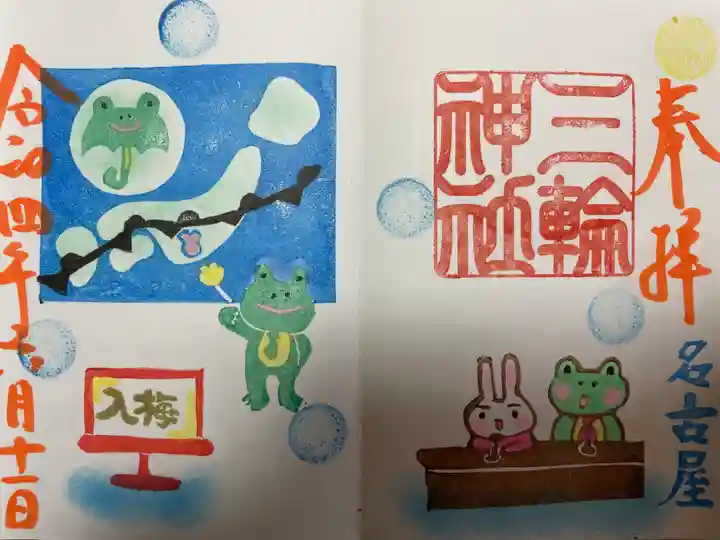 奉拝
名古屋
三輪
神社
入梅
令和四年六月十一日